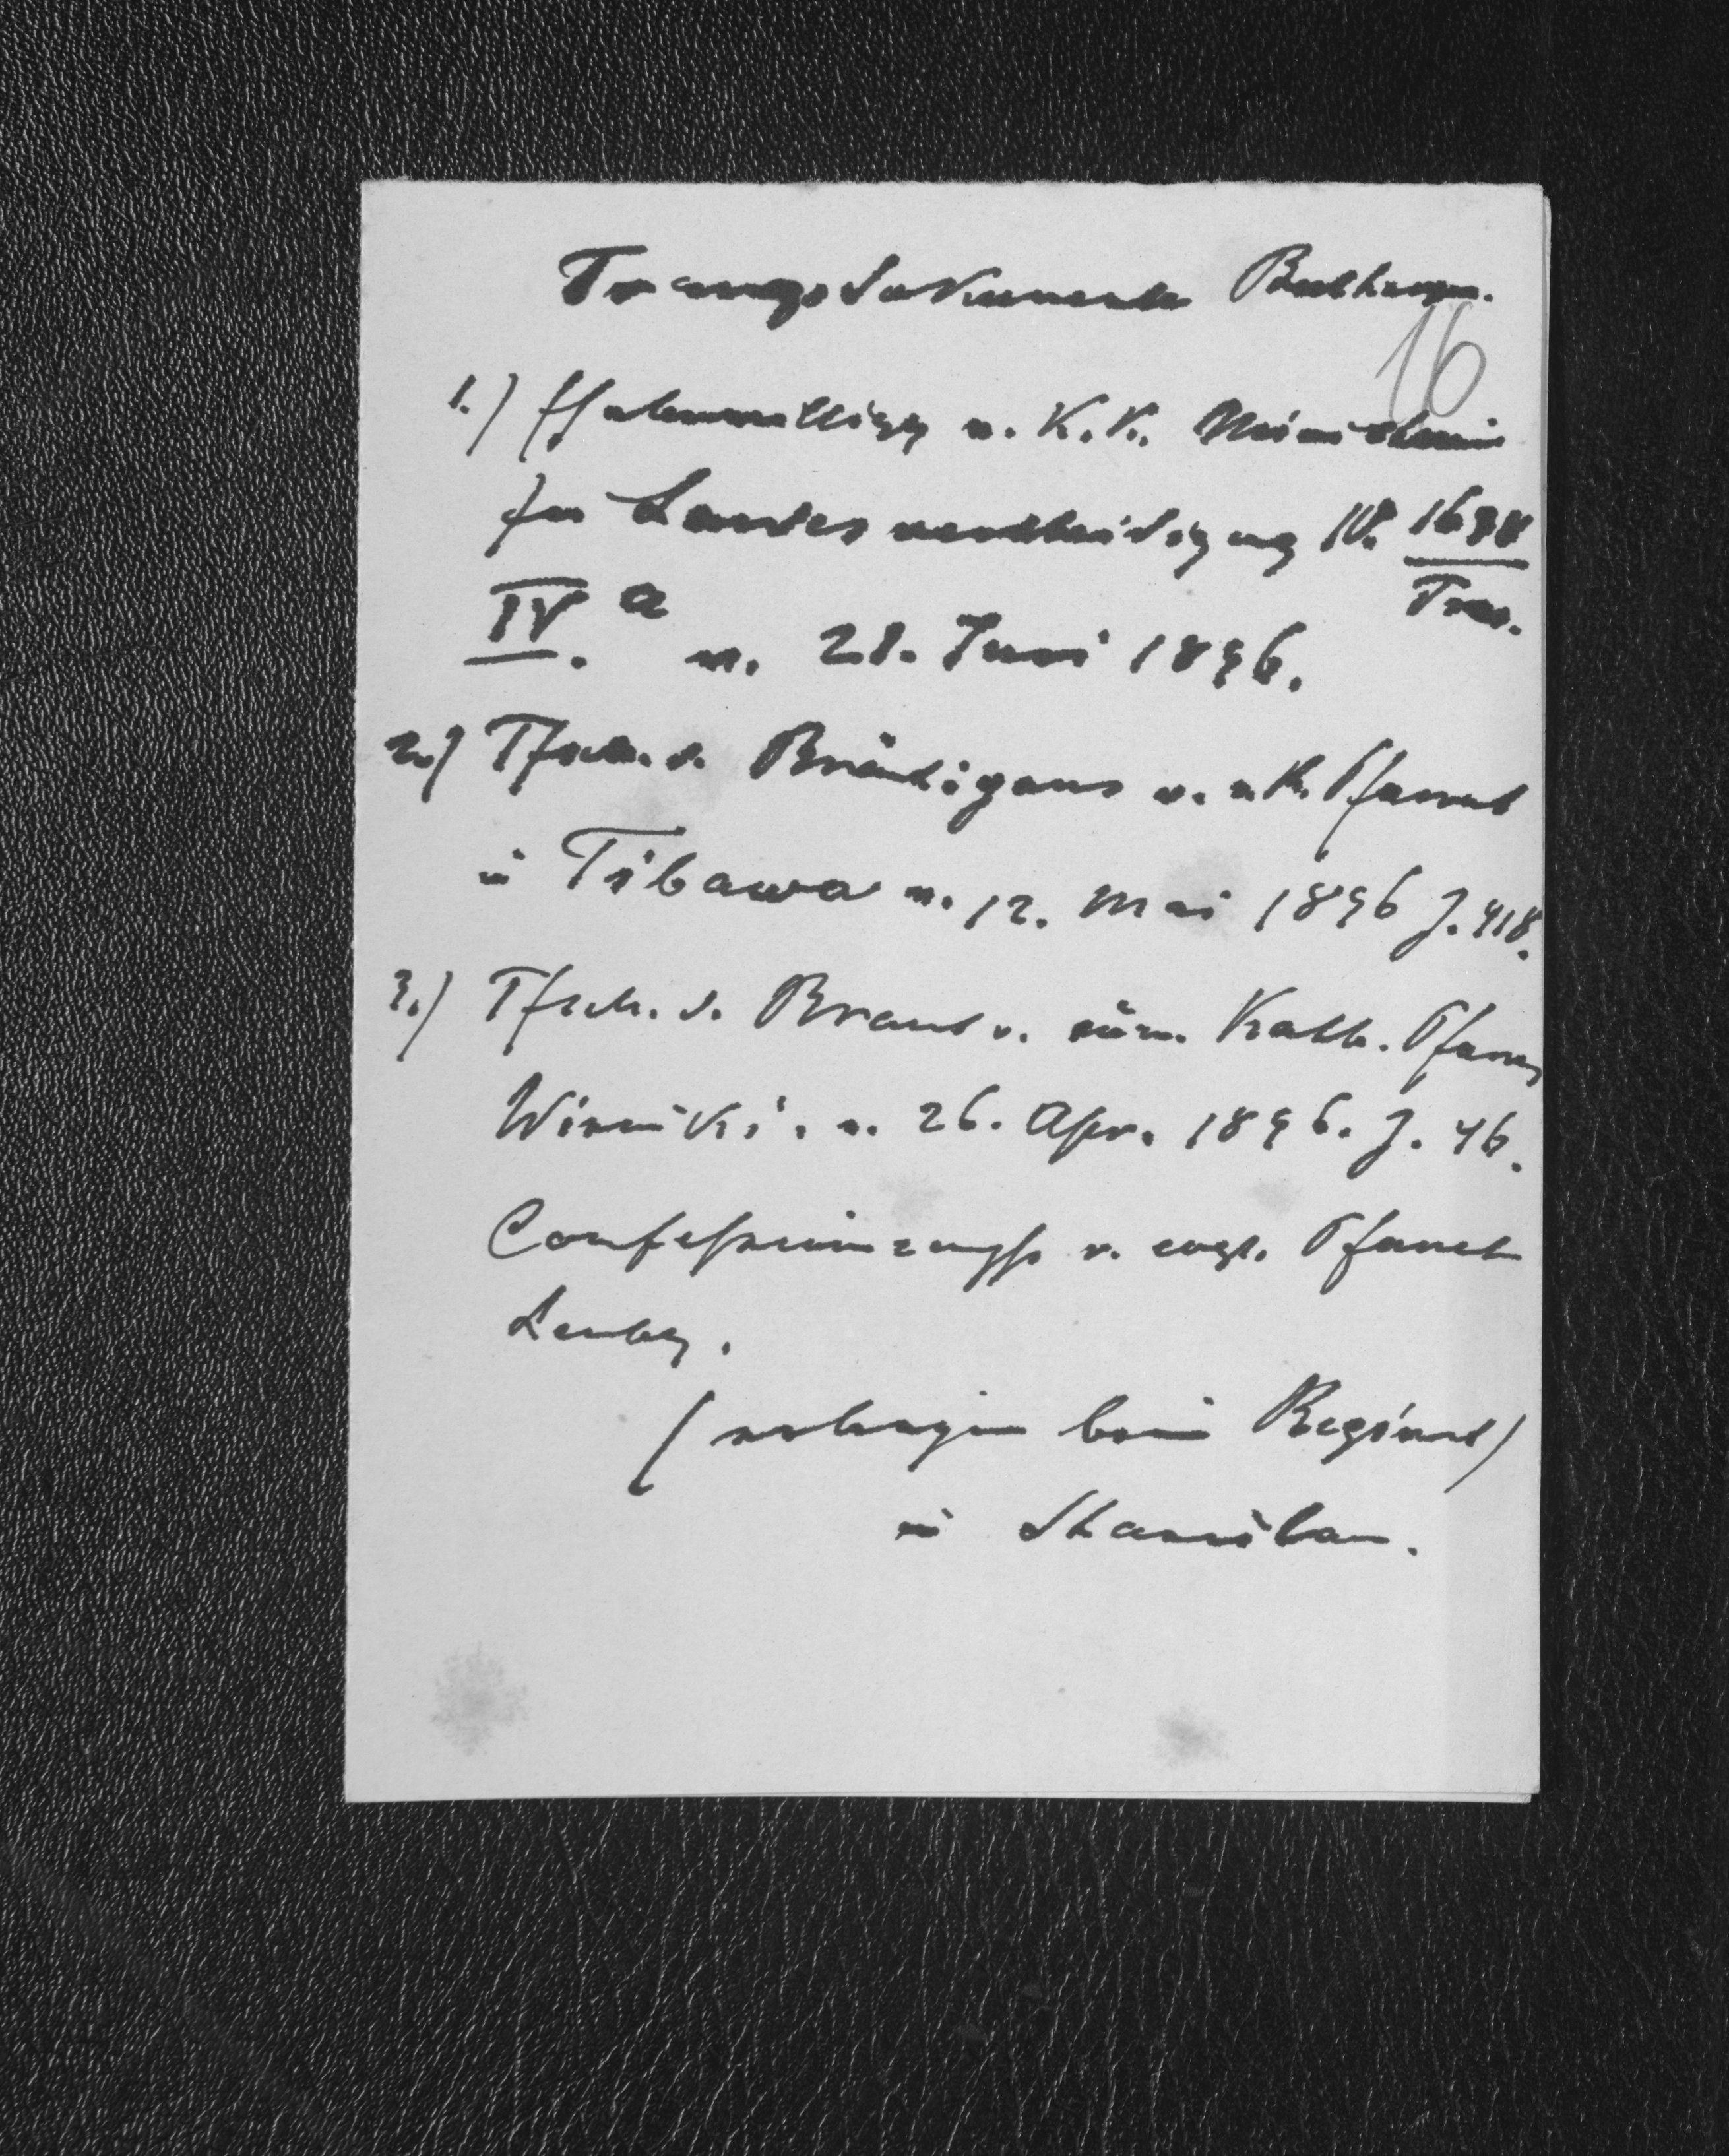 Trauungsdokumente
16
1.) Ehebewilligg v. K. K. Ministerium
für Landesvertheidigung N.
IV. a v. 28. Juni 1896.
2.) Tfsch. d. Bräutigams v. r. K. Pfarramt
in Tribawa v. 12. Mai 1896 J. 418.
3.) Tfsch. d. Braut v. röm. Kath. Pfarre
Winniki. v. 26. Apr. 1896. J. 46.
Confessionszeugß v. evgl. Pfarramt
Lemberg.
( beim )
in Stanislau.